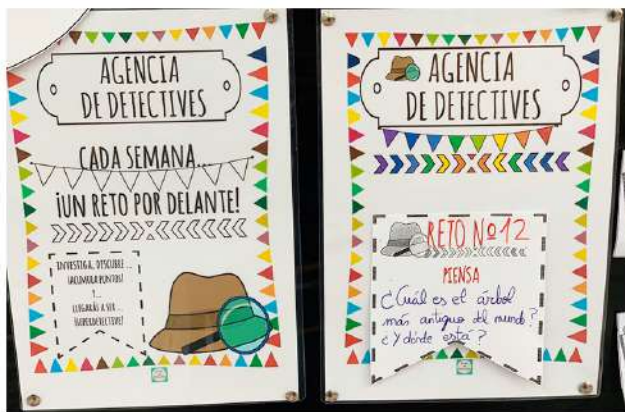 AGENCIA
DE DETECTIVES
CADA SEMANA...
¡UN RETO POR DELANTE!
INVESTIGA, DESCUBRE ...
¡ACUMULA PUNTOS!
Y...
LLEGARÁS A SER ...
¡SUPERDETECTIVE!
AGENCIA
DE DETECTIVES
RETO Nº12
PIENSA
¿Cuál es el árbol
más antiguo del mundo?
¿Y dónde está?